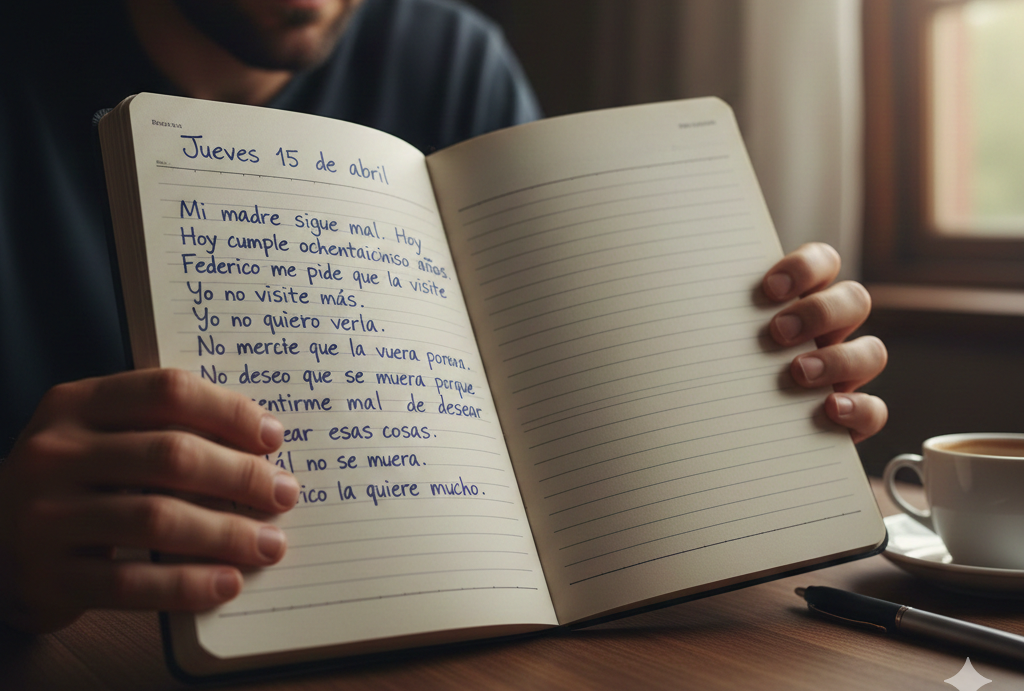 Jueves 15 de abril
Mi madre sigue mal. Hoy
Hoy cumple ochentaiciniso años.
Federico me pide que la visite
Yo no visite más.
Yo no quiero verla.
No mercie que la vuera
No deseo que se muera porque
entirme mal de desear
ear esas cosas.
ál no se muera.
rico la quiere mucho.